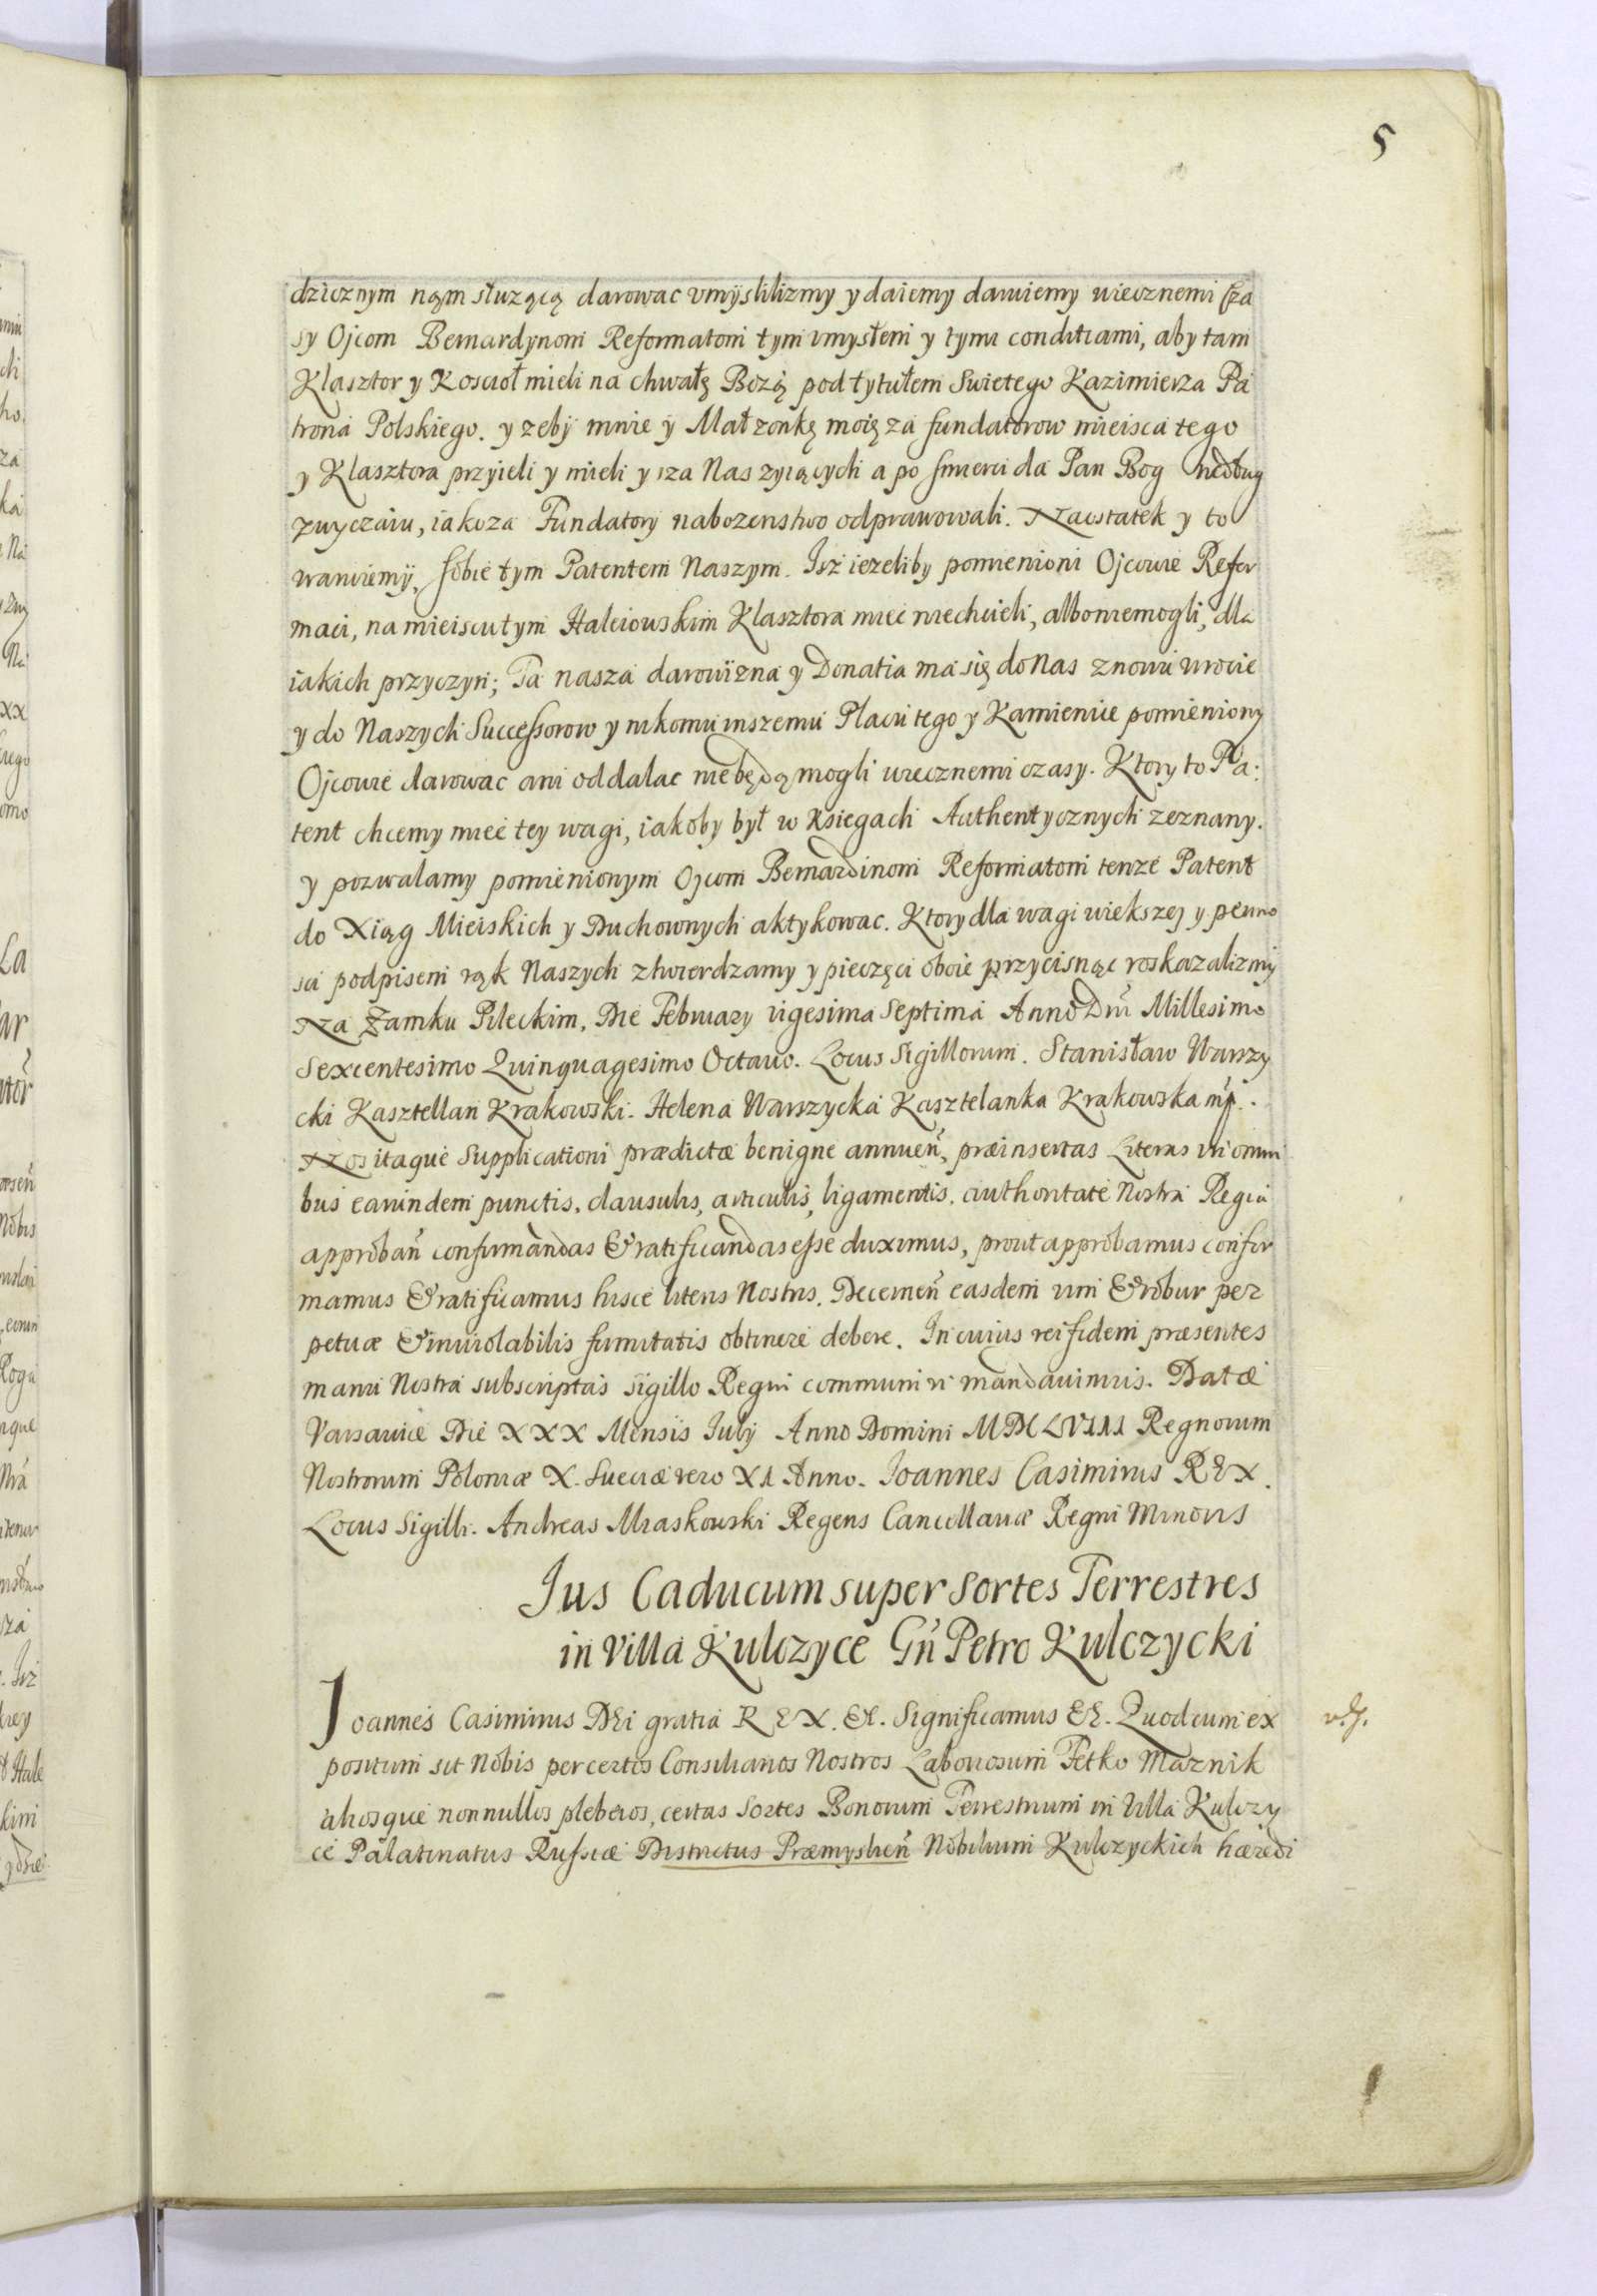 5
dzicznym nąm słuzącą darowac vmyslilizmy y daiemy daruiemy wiecznemi cza
sy Ojcom Bernardynom Reformatom tym vmysłem y tymi conditiami, aby tam
Klasztor y Koscioł mieli na chwałę Bozą pod tytułem Swietego Kazimierza Pa
trona Polskiego. y zeby mnie y Małzonkę moię za fundatorow mieisca tego
y Klasztora przyieli y mieli y za Nas zyiących a po smierci da Pan Bog według
zwyczaiu, iako za Fundatory nabozenstwo odprawowali. Naostatek y to
waruiemy, sobie tym Patentem Naszym. Isz iezeliby pomienioni Ojcowie Refor
maci, na mieiscu tym Haleiowskim Klasztora miec niechcieli, albo niemogli, dla
iakich przyczyn; Ta nasza darowizna y Donatia ma się do Nas znowu wrocic
y do Naszych Successorow y nikomu inszemu Placu tego y Kamienice pomieniony
Ojcowie darowac ani oddalac nie będą mogli wiecznemi czasy. Ktory to Pa:
tent chcemy miec tey wagi, iakoby był w Ksiegach Authentycznych zeznany.
y pozwalamy pomienionym Ojcom Bernardinom Reformatom tenze Patent
do Xiąg Mieiskich y Duchownych aktykowac. Ktory dla wagi wiekszej y pewno
sci podpisem rąk Naszych ztwierdzamy y pieczęci oboie przycisnąc roskazalizmy
Na Zamku Pileckim, Die February vigesima septima Anno Dni Millesimo
Sexcentesimo Quinquagesimo Octavo. Locus Sigillorum. Stanisław Warszy
cki Kasztellan Krakowski. Helena Warszycka Kasztelanka Krakowska mp.
Nos itaque Supplicationi prædictæ benigne annuen, præinsertas Literas in omni
bus earundem punctis, clausulis, articulis, ligamentis. authoritate Nostra Regia
approban confirmandas & ratificandas esse duximus, prout approbamus confir
mamus & ratificamus hisce literis Nostris. Decernen easdem vim & robur per
petuæ & inviolabilis firmitatis obtinere debere. In cuius rei fidem præsentes
manu Nostra subscriptas sigillo Regni communiri mandavimus. Datæ
Varsaviæ Die XXX Mensis July Anno Domini MDCLVIII Regnorum
Nostrorum Poloniæ X. Sueciæ vero XI Anno. Ioannes Casimirus REX.
Locus Sigilli. Andreas Miaskowski Regens Cancellariæ Regni Minoris
Ius Caducum super Sortes Terrestres
in Villa Kulczyce Gn Petro Kulczycki
Ioannes Casimirus Dei gratia REX. Etc. Significamus Etc. Quod cum ex
positum sit Nobis per certos Consiliarios Nostros Laboriosum Fetko Maznik
aliosque nonnullos plebeios, certas Sortes Bonorum Terrestrium in Villa Kulczy
ce Palatinatus Russiæ Districtus Præmyslien Nobilium Kulczyckich hæredi